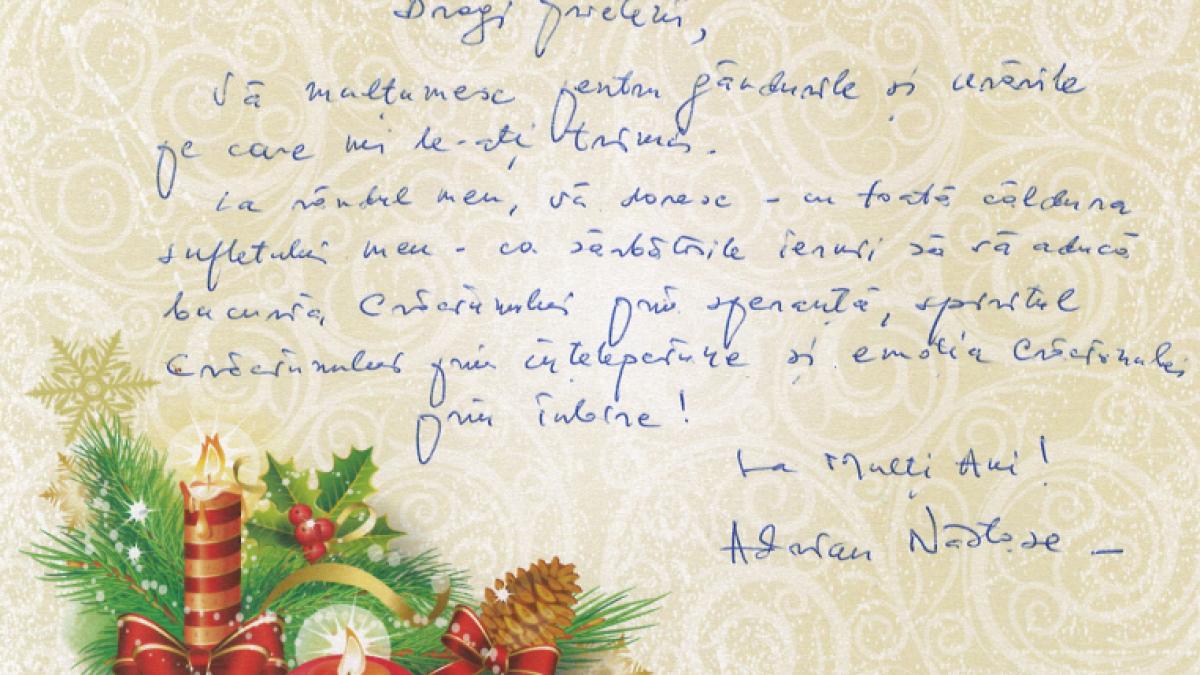 Dragi prieteni,
Vă mulțumesc pentru gândurile și urările
pe care mi le-ați trimis.
La rândul meu, vă doresc - cu toată căldura
sufletului meu - ca sărbătorile iernii să vă aducă
bucuria Crăciunului prin speranță, spiritul
Crăciunului prin înțelepciune și emoția Crăciunului
prin iubire!
La Mulți Ani!
Adrian Năstase -